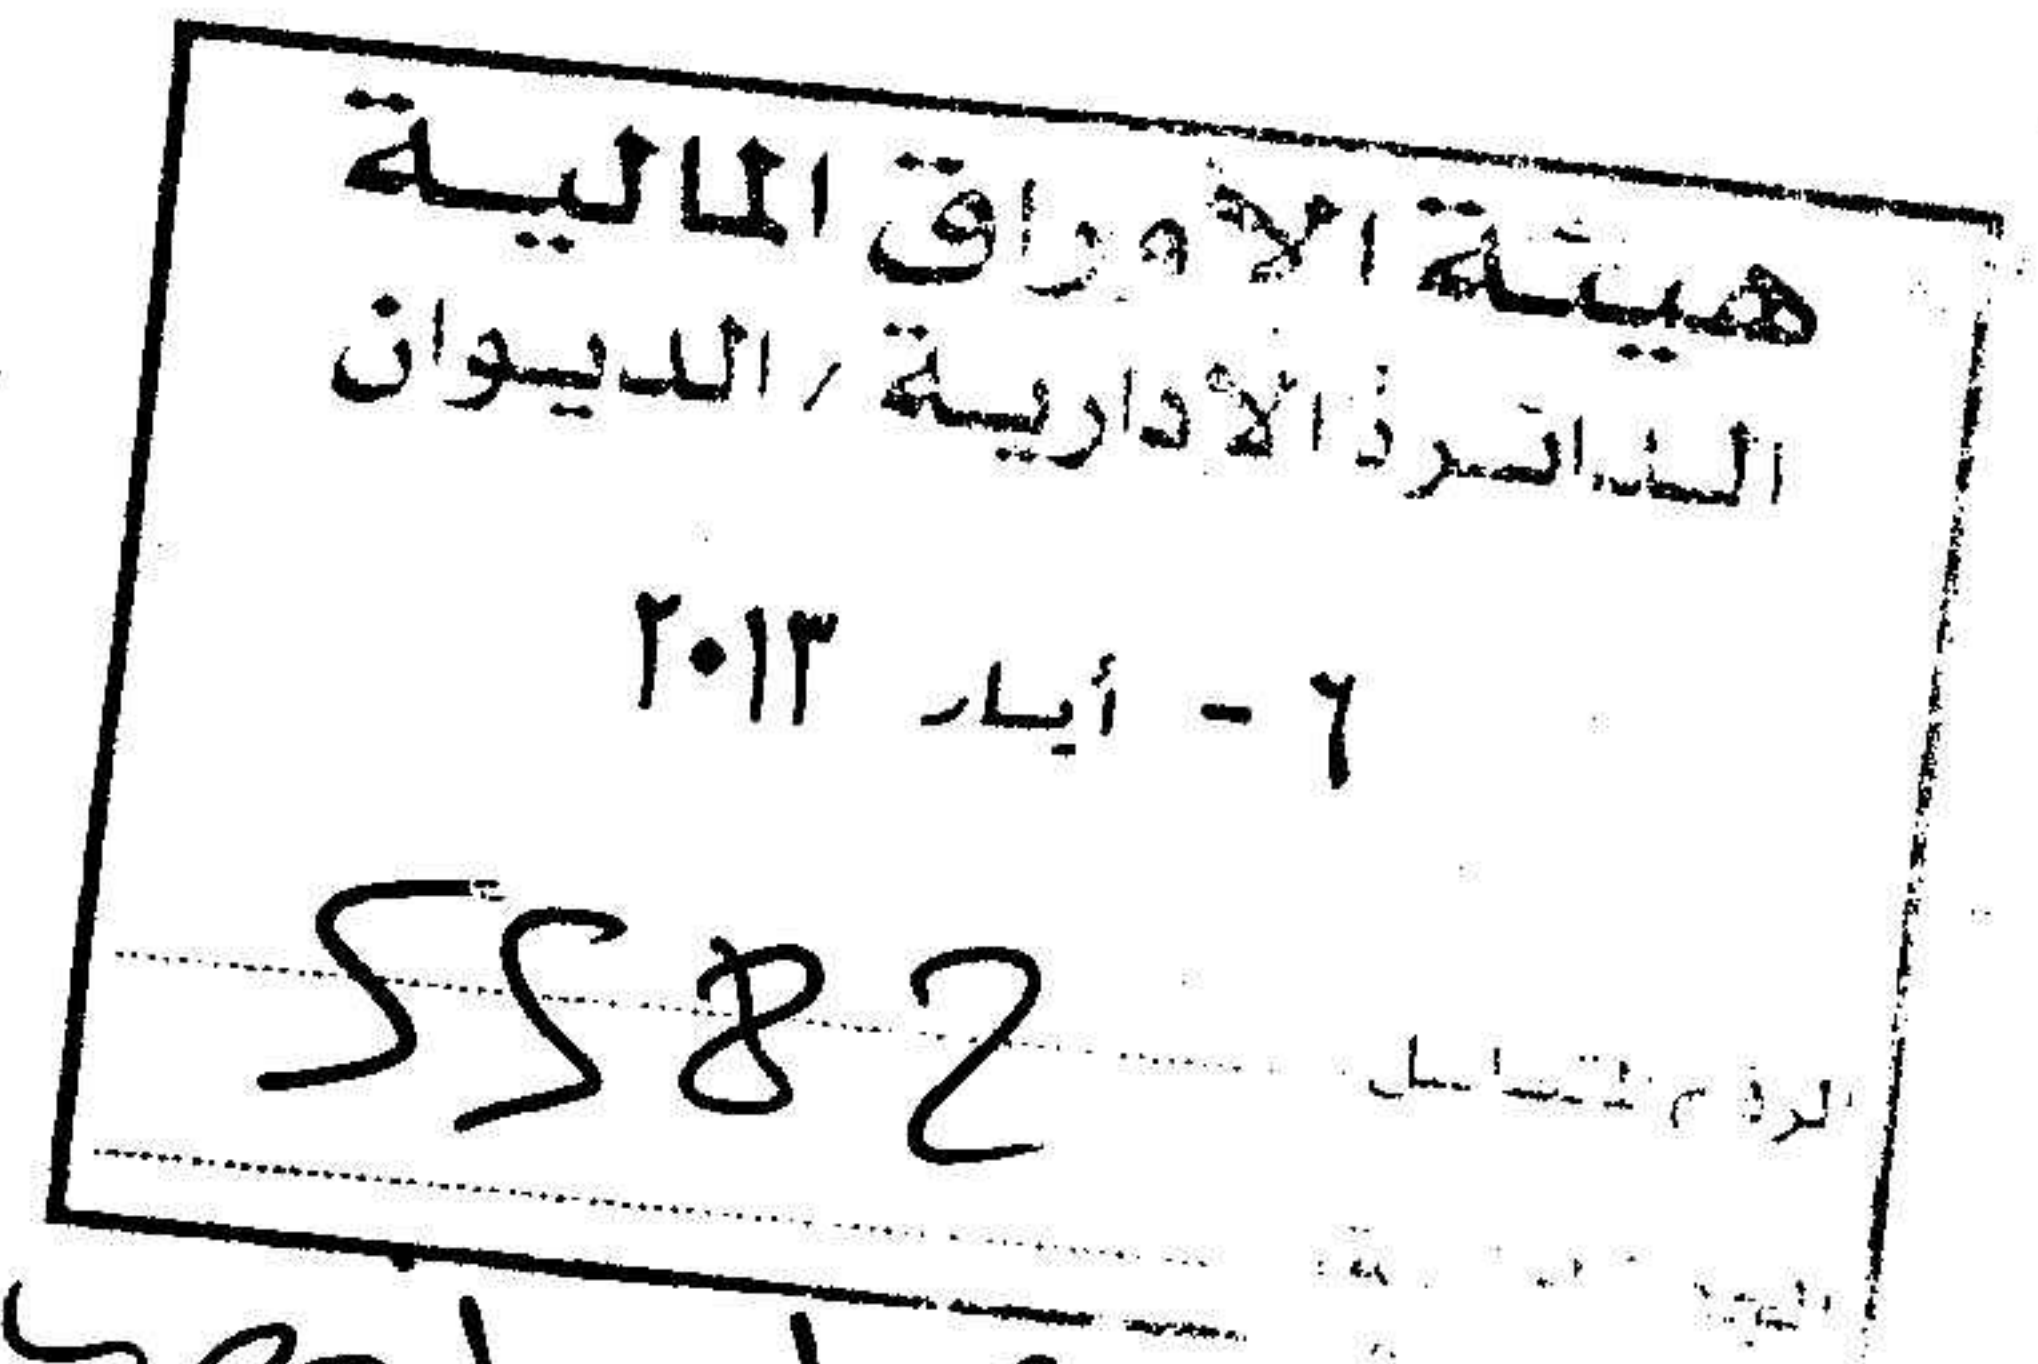 هيئة الاوراق المالية
الدائرة الادارية / الديوان
٦ - أيار ٢٠١٣
الرقم المتسلسل 5582